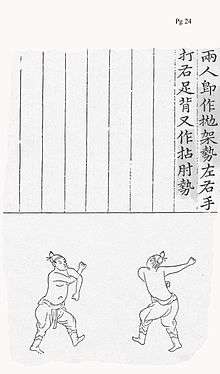 Pg 24
兩人即作抛架勢左右手
打右足背又作拈肘勢